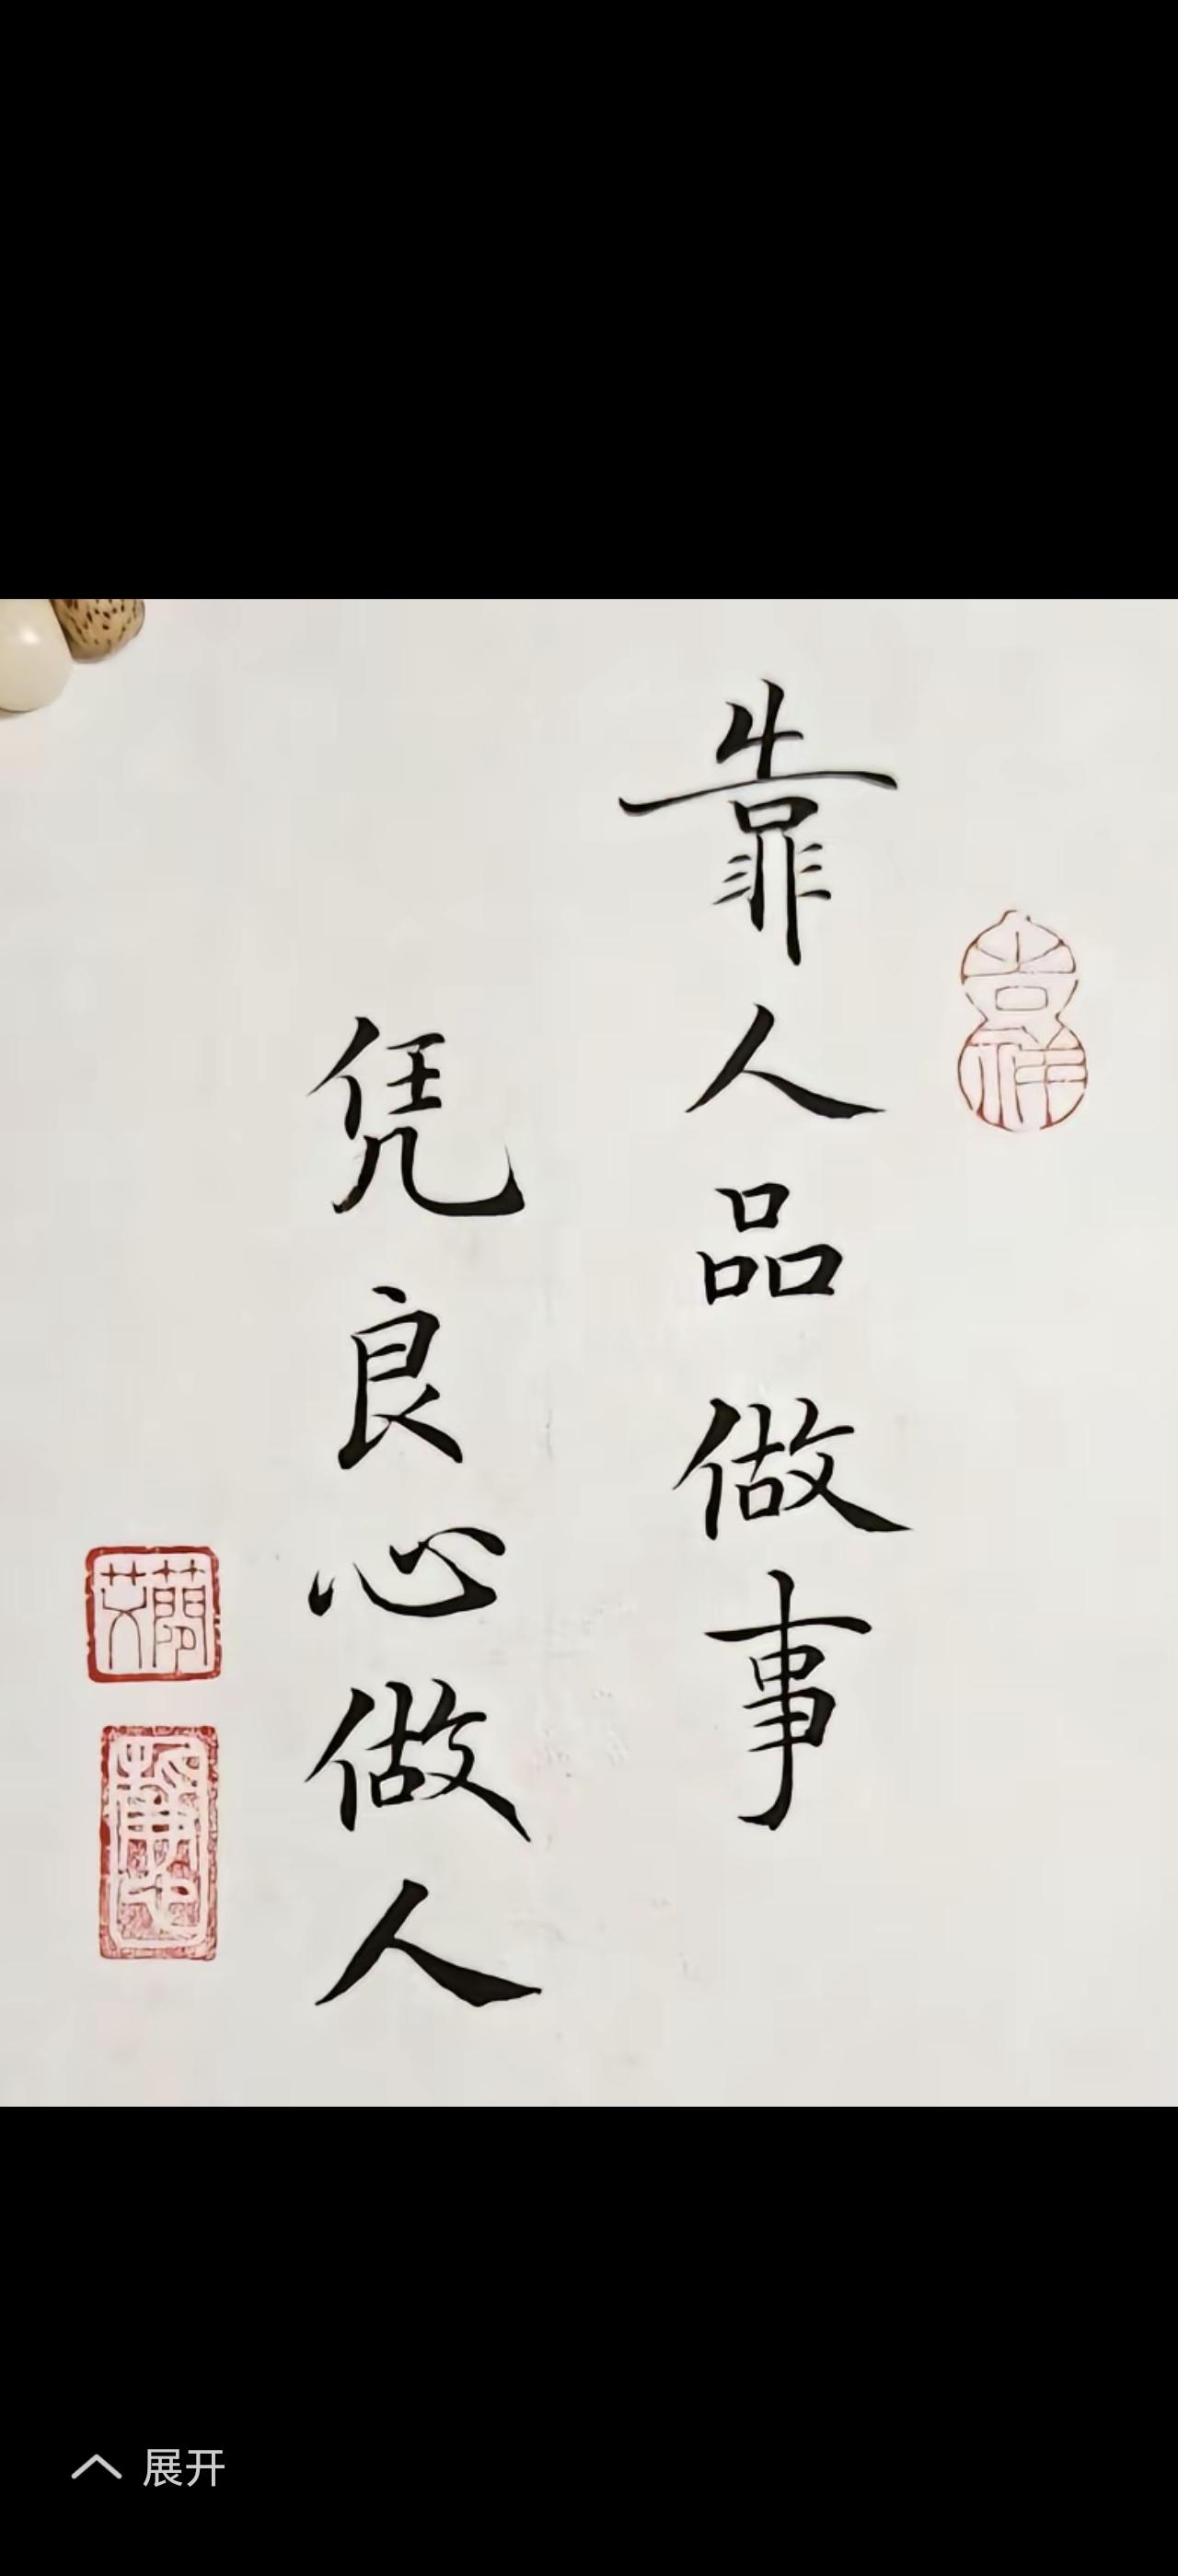 靠人品做事
凭良心做人
吉祥
展开